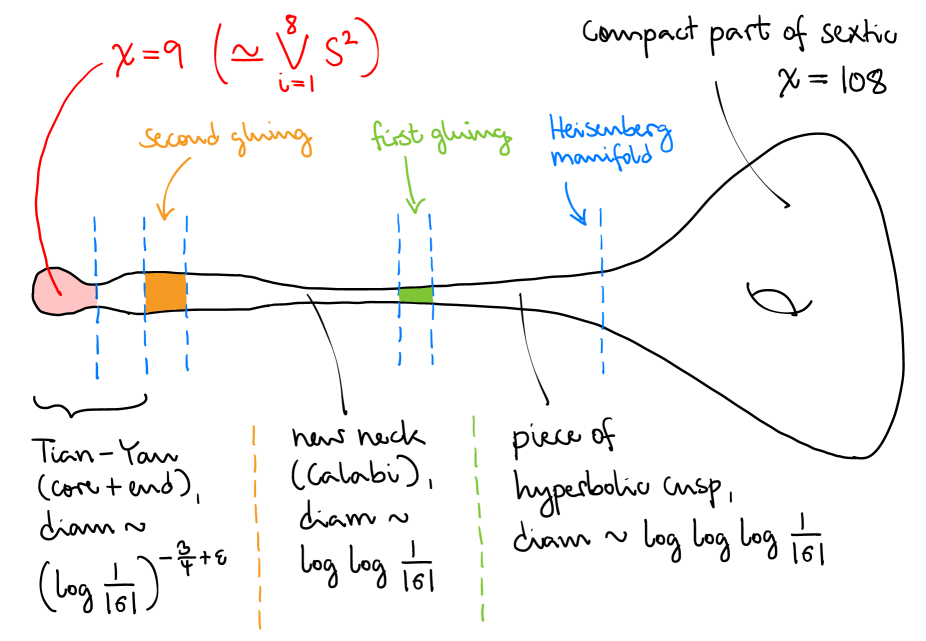 χ=9 (≃ ⋁_{i=1}^{8} S²)
compact part of sextic
χ = 108
second gluing
first gluing
Heisenberg
manifold
Tian-Yau
(core+end),
diam ~
(log 1/|σ|)^{-3/4+ε}
new neck
(Calabi),
diam ~
log log 1/|σ|
piece of
hyperbolic cusp,
diam ~ log log log 1/|σ|